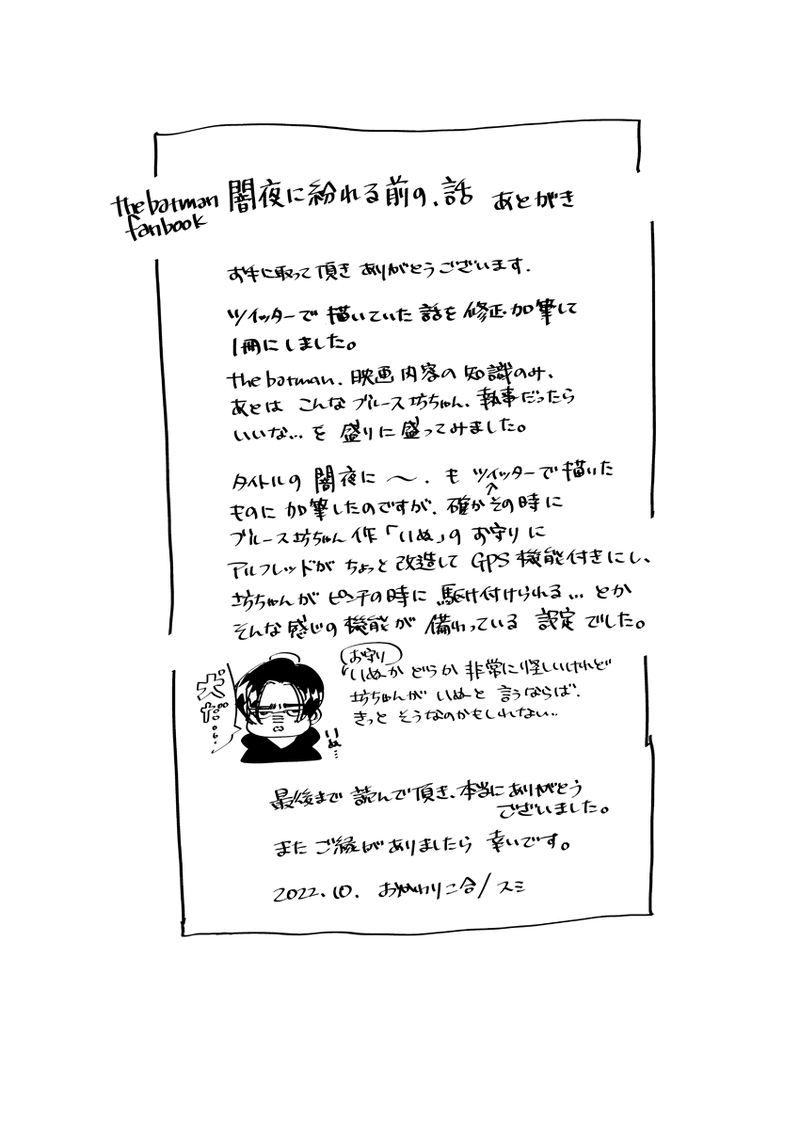 the batman fanbook 闇夜に紛れる前の、話 あとがき
お手に取って頂き ありがとうございます.
ツイッターで 描いていた 話を 修正・加筆して
1冊にしました。
the batman、映画内容の 知識のみ、
あとは こんな ブルース坊ちゃん、執事だったら
いいな… を 盛りに 盛ってみました。
タイトルの 闇夜に 〜、も ツイッターで 描いた
ものに 加筆したのですが、確か その時に
ブルース坊ちゃん 作「いぬ」の お守りに
アルフレッドが ちょっと 改造して GPS 機能付きにし、
坊ちゃんが ピンチの時に 駆け付けられる… とか
そんな 感じの 機能が 備わっている 設定 でした。
犬だ…
いぬ…
お守り
いぬか どうか 非常に 怪しいけれど
坊ちゃんが いぬと 言うならば、
きっと そうなのかもしれない..
最後まで 読んで頂き、本当に ありがとう
ございました。
また ご縁が ありましたら 幸いです。
2022.10. おかわり二合/スミ